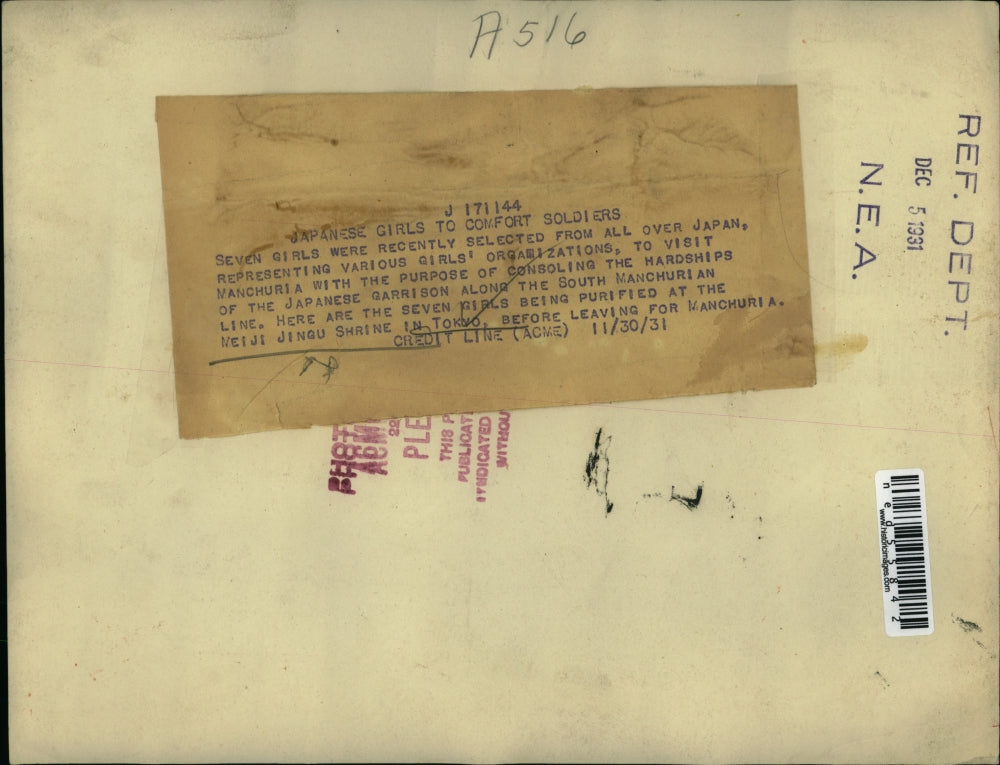 A 516
J 171144
JAPANESE GIRLS TO COMFORT SOLDIERS
SEVEN GIRLS WERE RECENTLY SELECTED FROM ALL OVER JAPAN,
REPRESENTING VARIOUS GIRLS' ORGANIZATIONS, TO VISIT
MANCHURIA WITH THE PURPOSE OF CONSOLING THE HARDSHIPS
OF THE JAPANESE GARRISON ALONG THE SOUTH MANCHURIAN
LINE. HERE ARE THE SEVEN GIRLS BEING PURIFIED AT THE
MEIJI JINGU SHRINE IN TOKYO, BEFORE LEAVING FOR MANCHURIA.
CREDIT LINE (ACME) 11/30/31
REF. DEPT.
DEC 5 1931
N.E.A.
PHOT
ACM
22
PLE
THIS P
PUBLICAT
SYNDICATED
WITHOU
ned55842
www.historicimages.com